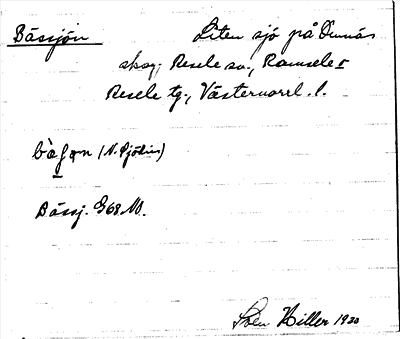 Bässjön Liten sjö på Omnäs
skog, Resele sn., Ramsele o
Resele tg., Västernorrl. l.
(N. Sjödin)
Bässj. G68 NO.
Sven Hiller 1930